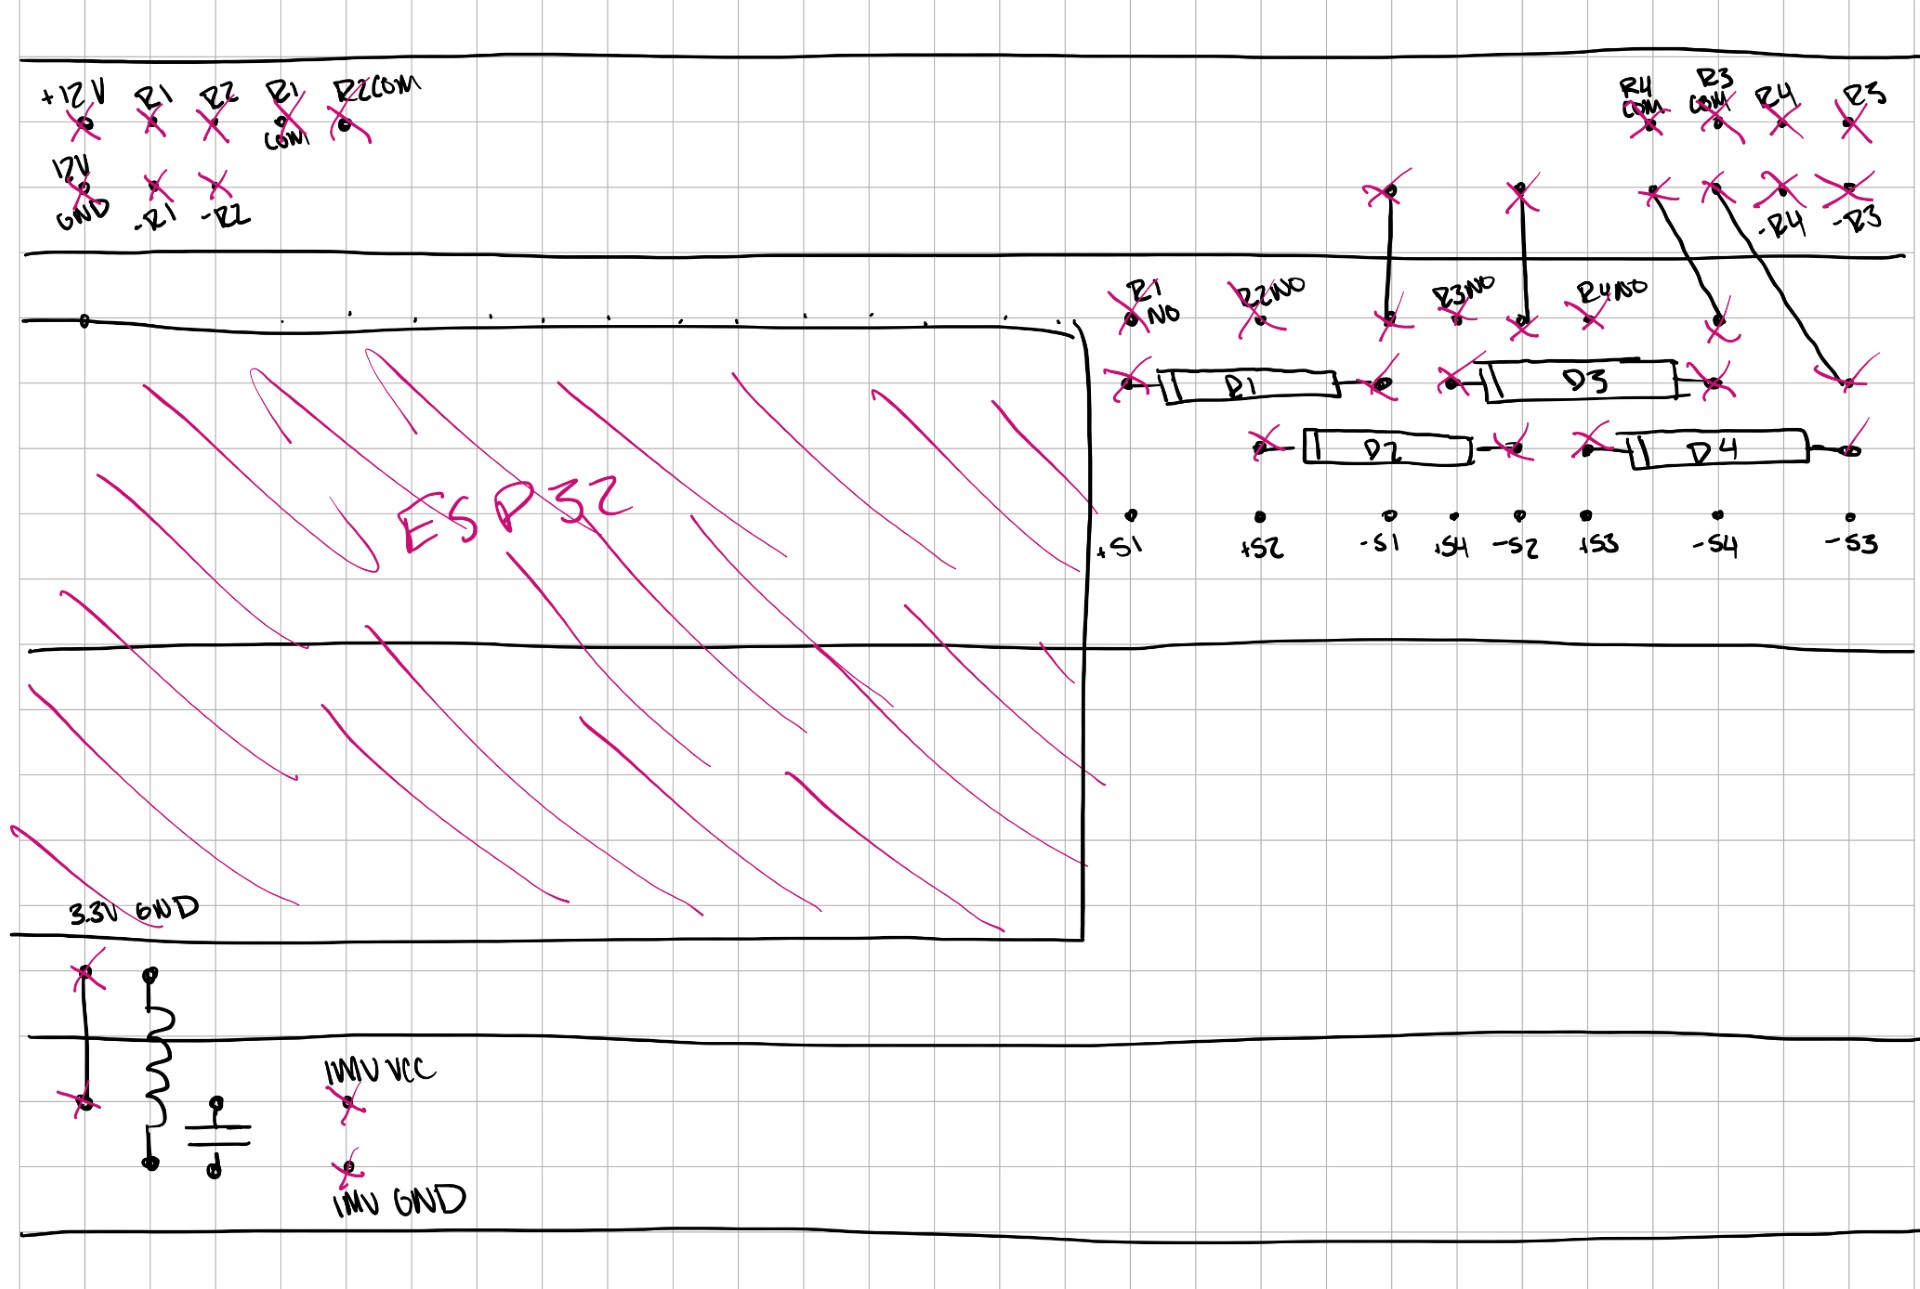 +12V R1 R2 R1 COM R2COM
12V GND -R1 -R2
R4 COM R3 COM R4 R3
-R4 -R3
R1 NO R2NO R3NO R4NO
D1 D3
D2 D4
+S1 +S2 -S1 +S4 -S2 +S3 -S4 -S3
ESP32
3.3V GND
IMU VCC
IMU GND